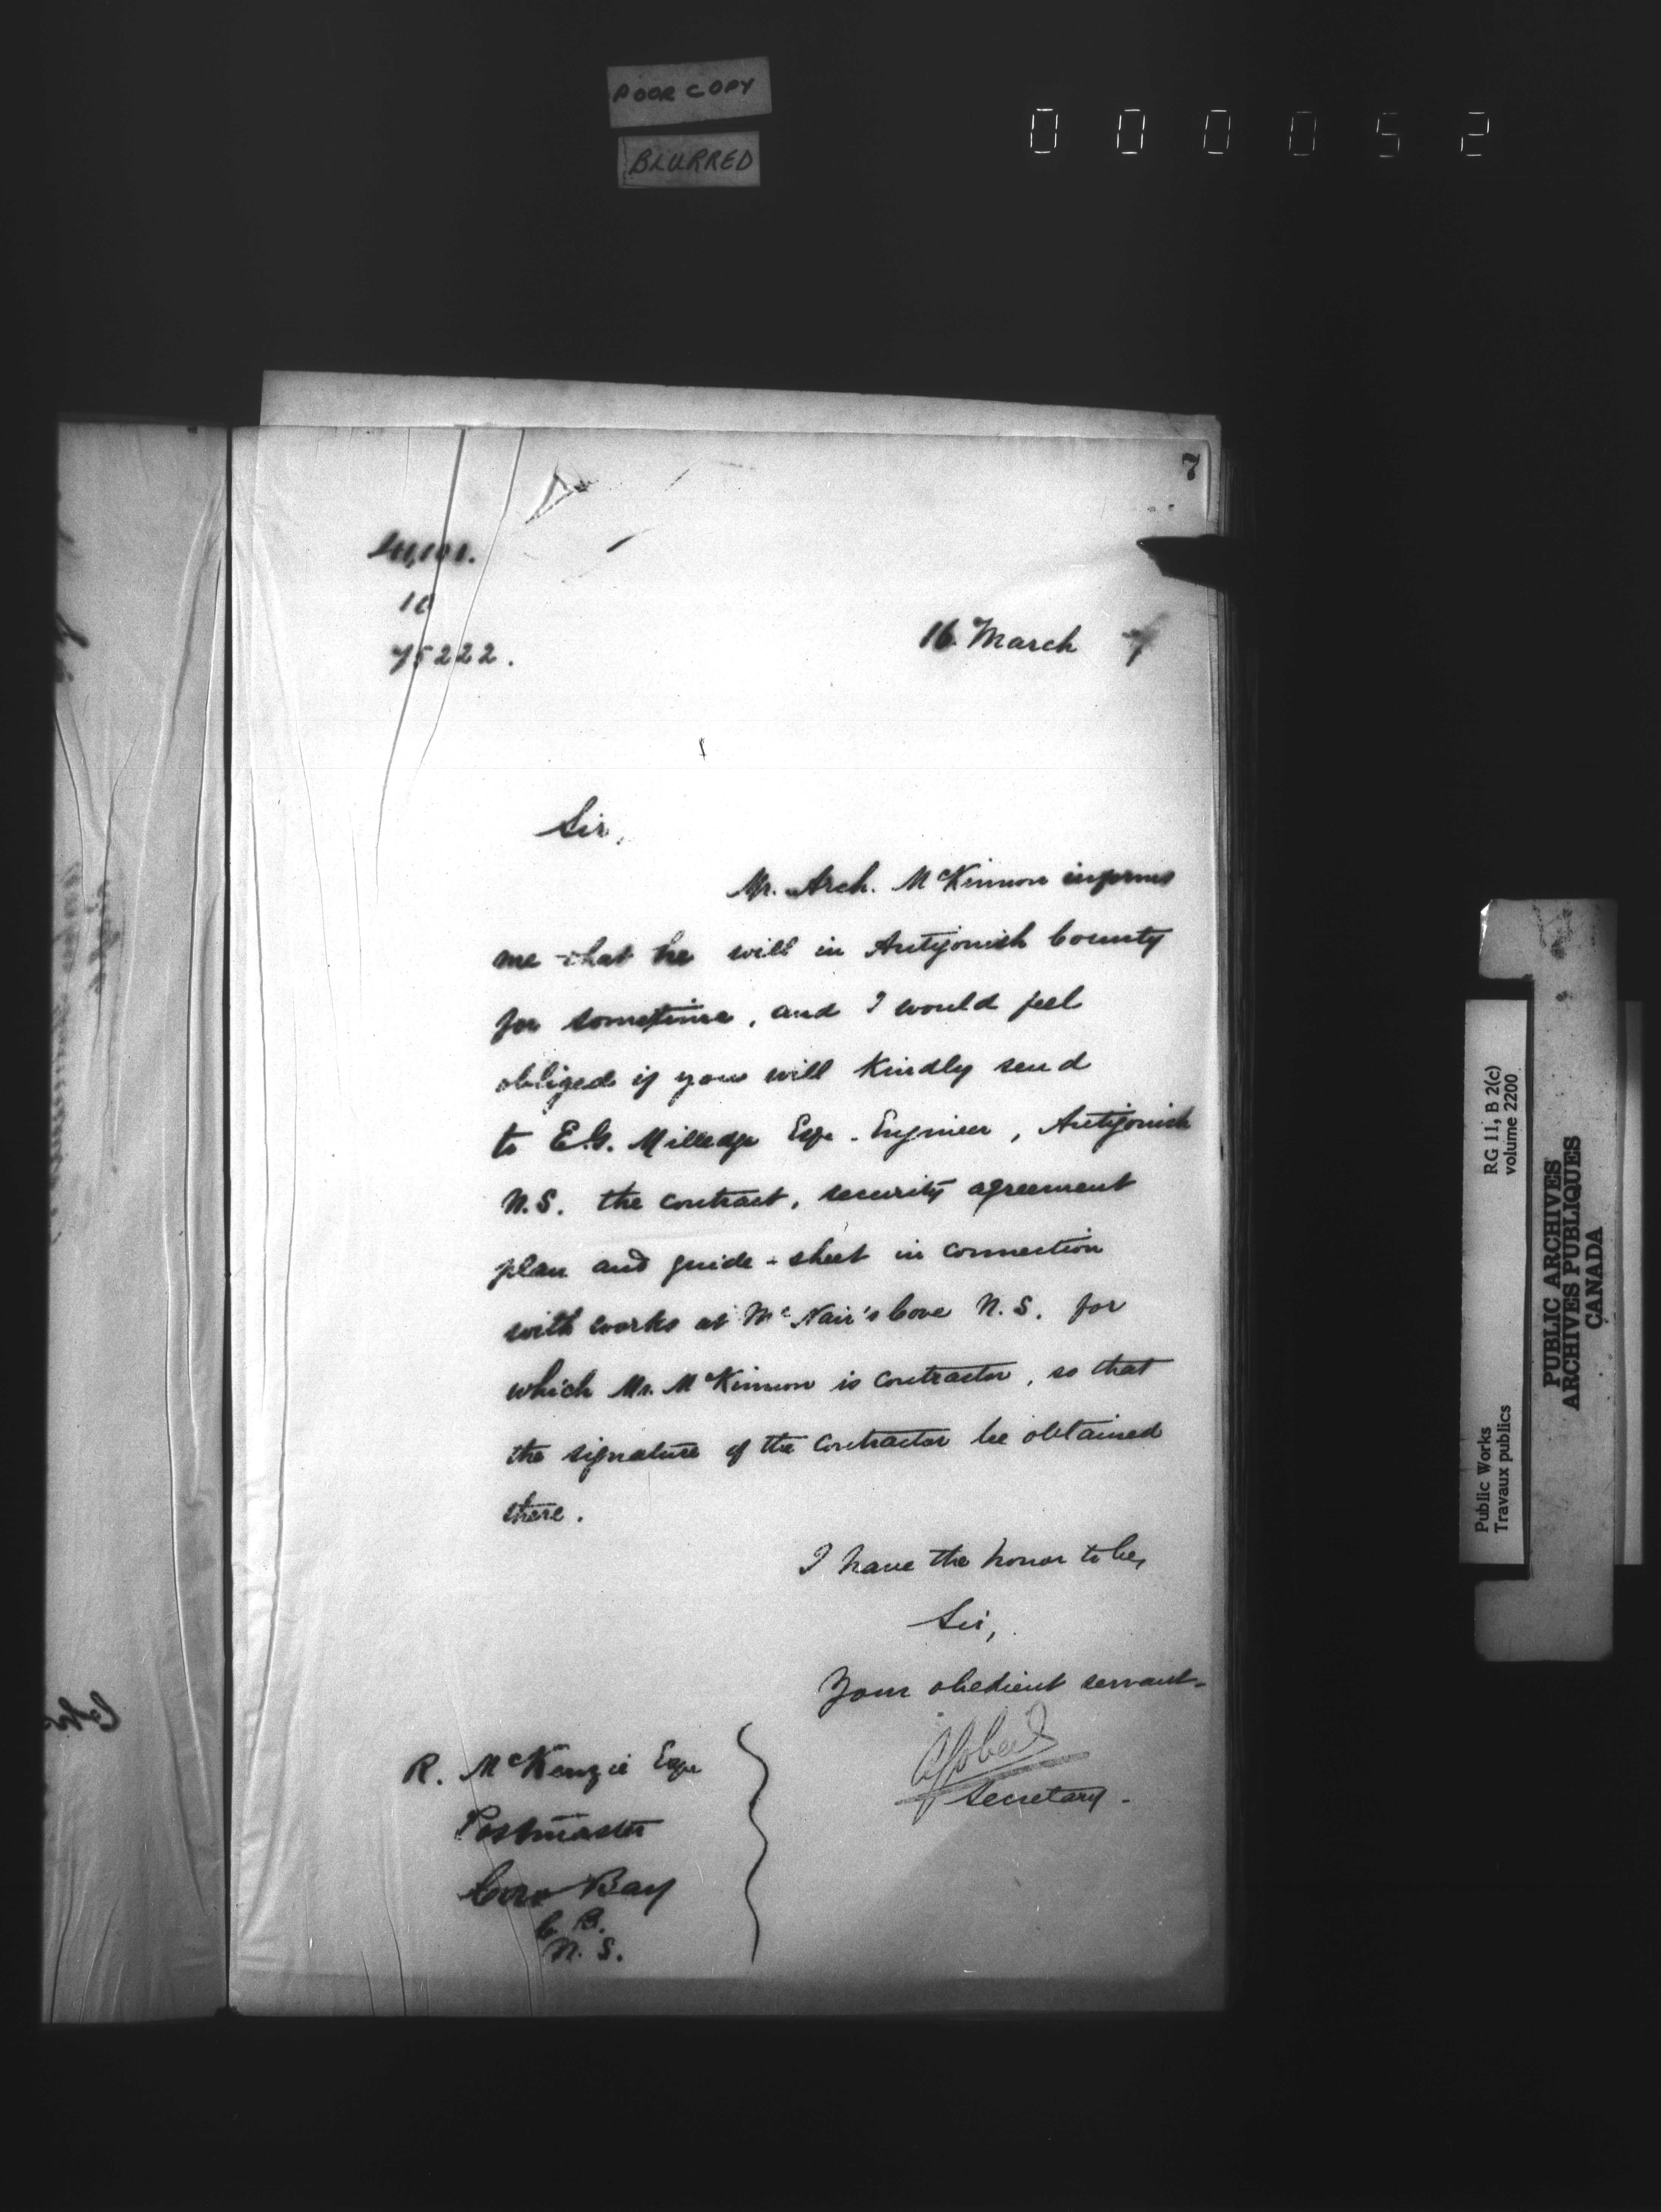 POOR COPY
BLURRED
000052
7
10
75222.
16 March 7
Sir,
Mr. Arch. McKinnon informs
me that he will in Antigonish County
for sometime, and I would feel
obliged if you will kindly send
to E.G. Milledge Esqr. Engineer, Antigonish
N.S. the contract, security agreement
plan and guide-sheet in connection
with works at McNair's Cove N.S. for
which Mr. McKinnon is contractor, so that
the signature of the contractor be obtained
there.
I have the honor to be,
Sir,
Your obedient servant
Secretary.
R. McKenzie Esqr
Postmaster
Bay
C.B.
N.S.
Public Works
Travaux publics
RG 11, B 2(c)
volume 2200
PUBLIC ARCHIVES
ARCHIVES PUBLIQUES
CANADA